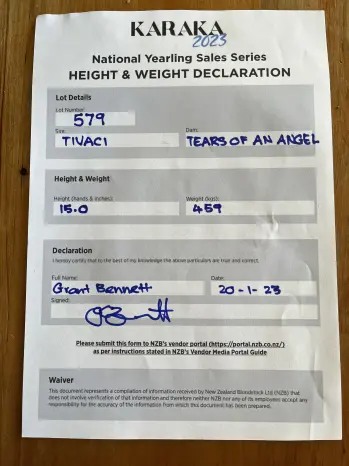 KARAKA
2023
National Yearling Sales Series
HEIGHT & WEIGHT DECLARATION
Lot Details
Lot Number:
579
Sire: Dam:
TIVACI TEARS OF AN ANGEL
Height & Weight
Height (hands & inches): Weight (kgs):
15.0 459
Declaration
I hereby certify that to the best of my knowledge the above particulars are true and correct.
Full Name: Date:
Grant Bennett 20-1-23
Signed:
Please submit this form to NZB's vendor portal (https://portal.nzb.co.nz/)
as per instructions stated in NZB's Vendor Media Portal Guide
Waiver
This document represents a compilation of information received by New Zealand Bloodstock Ltd (NZB) that
does not involve verification of that information and therefore neither NZB nor any of its employees accept any
responsibility for the accuracy of the information from which this document has been prepared.